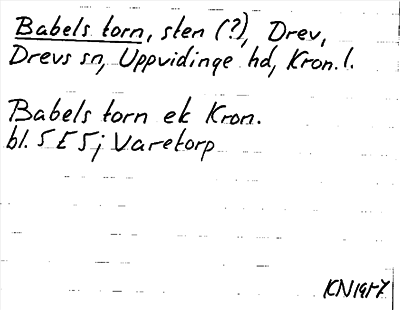 Babels torn, sten (?), Drev,
Drevs sn, Uppvidinge hd, Kron. l.
Babels torn ek Kron.
bl. 5 E 5j Varetorp
KN 1957